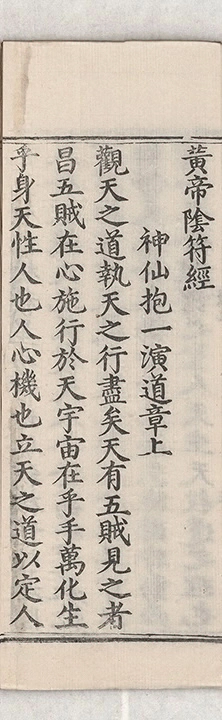 黃帝陰符經
神仙抱一演道章上
觀天之道執天之行盡矣天有五賊見之者
昌五賊在心施行於天宇宙在乎手萬化生
乎身天性人也人心機也立天之道以定人